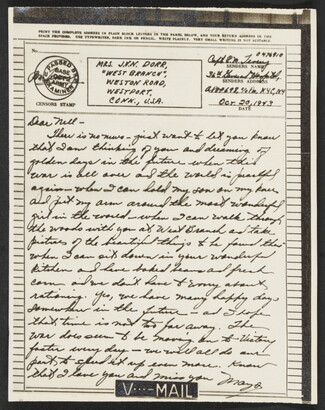 PRINT THE COMPLETE ADDRESS IN PLAIN BLOCK LETTERS IN THE PANEL BELOW, AND YOUR RETURN ADDRESS IN THE
SPACE PROVIDED. USE TYPEWRITER, DARK INK OR PENCIL. WRITE PLAINLY. VERY SMALL WRITING IS NOT SUITABLE.
No.
PASSED BY
BASE
EXAMINER
CENSORS STAMP
MRS. J.V.N. DORR,
"WEST BRANCH",
WESTON ROAD,
WESTPORT,
CONN., U.S.A.
SENDERS NAME
36th General Hospital,
SENDERS ADDRESS
Oct. 20, 1943
DATE
Dear Nell-
There is no news - just want to let you know
that I am thinking of you and dreaming of
golden days in the future - when this
war is all over and the world is peaceful
again - when I can hold my son on my knee
and put my arm around the most wonderful
girl in the world - when I can walk through
the woods with you at West Branch and take
pictures of the beautiful things to be found there -
when I can sit down in your wonderful
kitchen and have baked beans and fresh
corn - and we don't have to worry about
rationing. Yes, we have many happy days
somewhere in the future - and I hope
that time is not too far away. The
war does seem to be moving on to Victory
faster every day - we will all do our
part, to speed it up even more. Know
that I love you and miss you
V···—MAIL